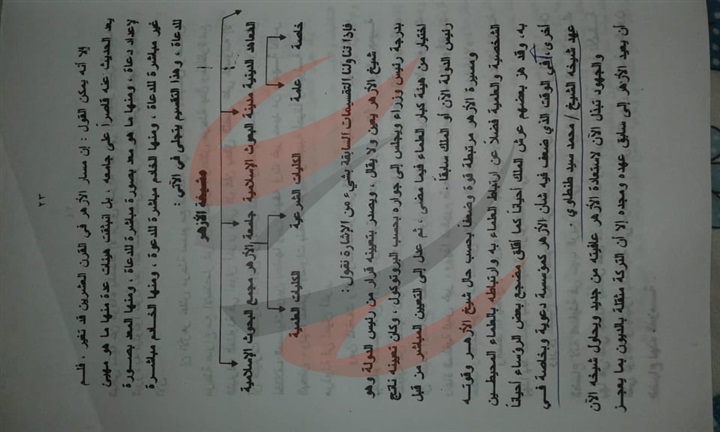 ٢٣
إلا أنه يمكن القول : إن مسار الأزهر في القرن العشرين قد تغير ، فلم
يعد الحديث عنه قاصراً على جامعه ، بل انبثقت هيئات عدة منها ما هو مهيئ
لإعداد دعاة ، ومنها ما هو معد بصورة مباشرة للدعاة ، ومنها المعد بصورة
غير مباشرة للدعاة ، ومنها الخادم مباشرة للدعوة ، ومنها الخادم مباشرة
للدعاة ، وهذا التقسيم يتجلى في الآتي :
مشيخة الأزهر
المعاهد الدينية مدينة البحوث الإسلامية جامعة الأزهر مجمع البحوث الإسلامية
خاصة عامة الكليات الشرعية الكليات العلمية
فإذا تناولنا التقسيمات السابقة بشيء من الإشارة نقول :
شيخ الأزهر يعين ولا يقال ، ويصدر بتعيينه قرار من رئيس الدولة وهو
بدرجة رئيس وزراء ويجلس إلى جواره بحسب البروتوكول ، وكان تعيينه نتاج
اختيار من هيئة كبار العلماء فيما مضى ، ثم عدل إلى التعيين المباشر من قبل
رئيس الدولة الآن أو الملك سابقاً.
ومسيرة الأزهر مرتبطة قوة وضعفاً بحسب حال شيخ الأزهر وقوته
الشخصية والعلمية فضلاً عن ارتباط العلماء به وارتباطه بالعلماء المحيطين
به ، وقد هز بعضهم عرش الملك أحياناً كما أقلق مضجع بعض الرؤساء أحياناً
أخرى، في الوقت الذي ضعف فيه شأن الأزهر كمؤسسة دعوية وبخاصة في
عهد شيخه الشيخ / محمد سيد طنطاوي .
والجهود تبذل الآن لاستعادة الأزهر عافيته من جديد ويحاول شيخه الآن
أن يعيد الأزهر إلى سابق عهده ومجده إلا أن التركة مثقلة بالديون بما يعجز